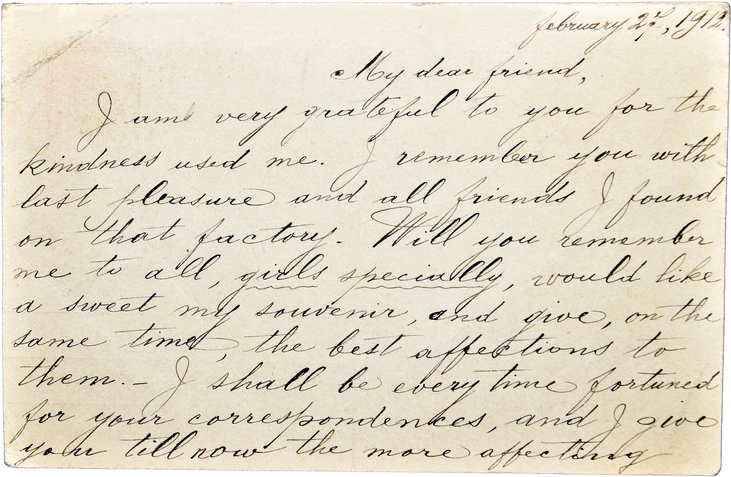 february 2d, 1912.
My dear friend,
I am very grateful to you for the
kindness used me. I remember you with
last pleasure and all friends I found
on that factory. Will you remember
me to all, girls specially, would like
a sweet my souvenir, and give, on the
same time, the best affections to
them. - I shall be every time fortuned
for your correspondences, and I give
you till now the more affecting